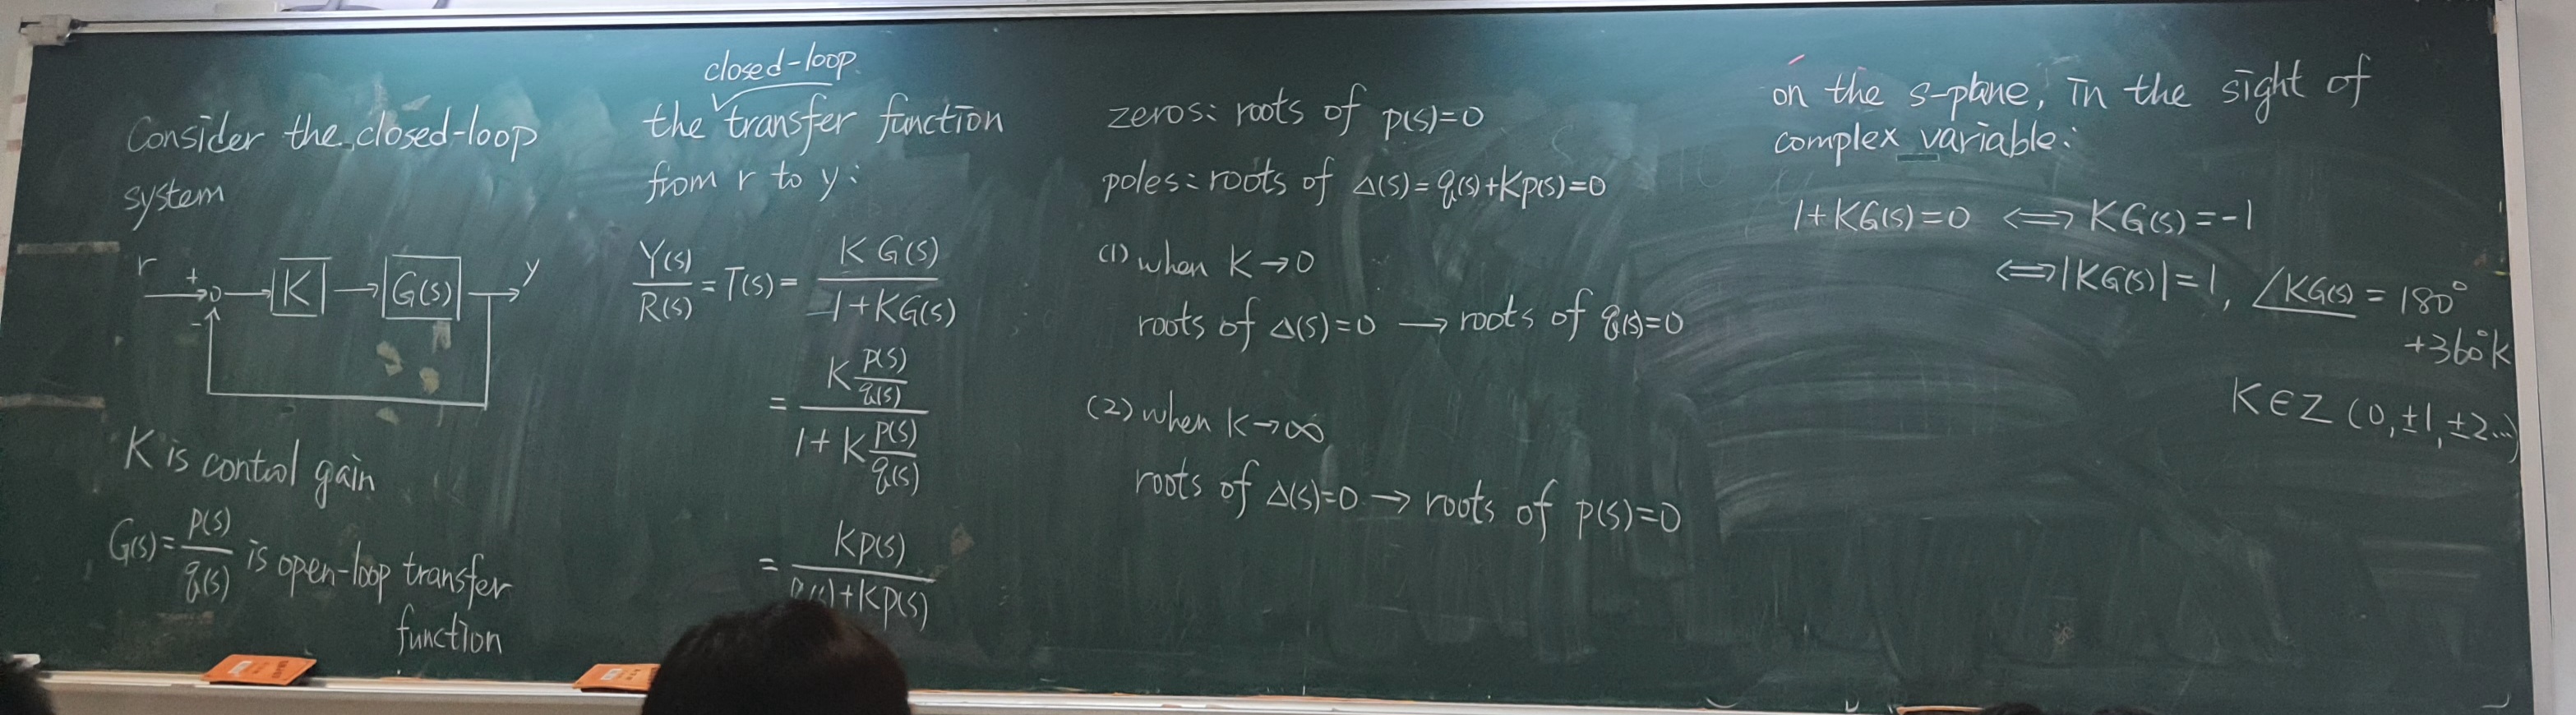 Consider the closed-loop
system
r + - K G(s) y
K is control gain
G(s) = p(s)/q(s) is open-loop transfer
function
closed-loop
the transfer function
from r to y:
Y(s)/R(s) = T(s) = K G(s)/(1+KG(s))
= (K p(s)/q(s))/(1+K p(s)/q(s))
= Kp(s)/( +Kp(s))
zeros: roots of p(s)=0
poles: roots of Δ(s)=q(s)+Kp(s)=0
(1) when K→0
roots of Δ(s)=0 → roots of q(s)=0
(2) when K→∞
roots of Δ(s)=0 → roots of p(s)=0
on the s-plane, in the sight of
complex variable:
1+KG(s)=0 ⟺ KG(s)=-1
⟺ |KG(s)|=1, ∠KG(s) = 180°
+360°k
K∈Z (0,±1,±2...)